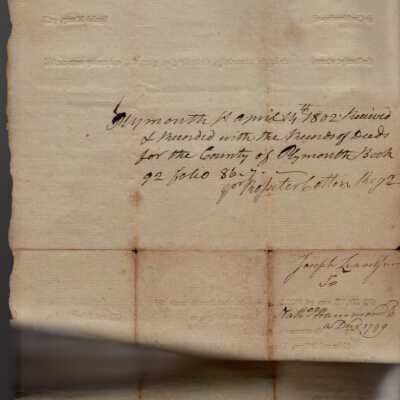 Plymouth ss April 14th 1802 Received
& Recorded with the Records of Deeds
for the County of Plymouth Book
92 folio 86-7
pr Rossiter Cotton Regr
Joseph
To
Nathl Hammond
a Deed 1799